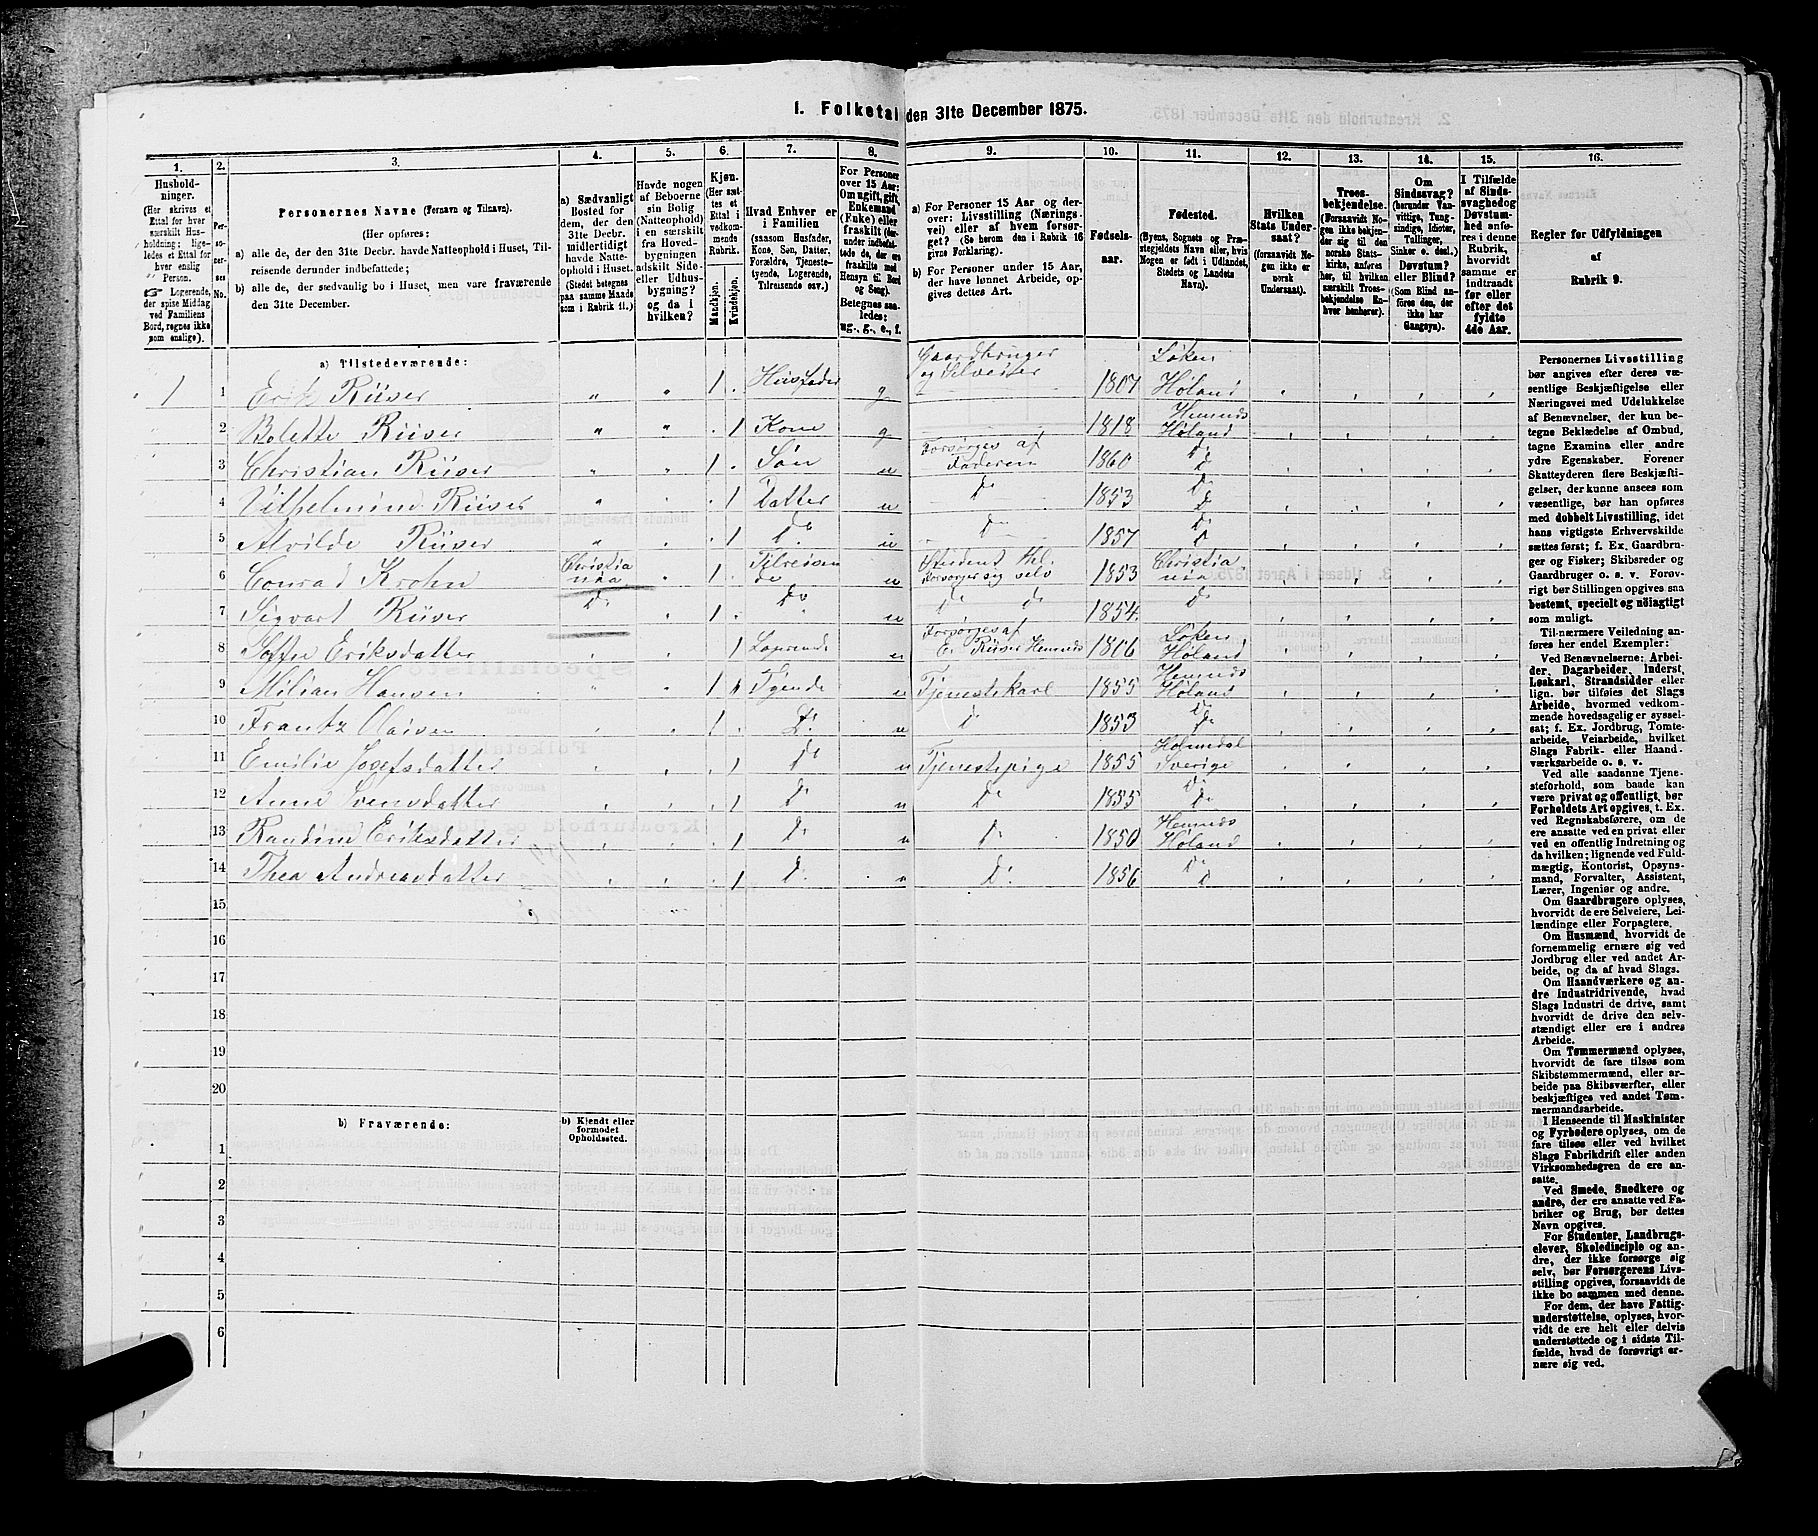 1. Folketal den 31te December 1875.
1. 2. 3. 4. 5. 6. 7. 8. 9. 10. 11. 12. 13. 14. 15. 16.
Husholdninger.
(Her skrives et
Ettal for hver
særskilt Husholdning;
ligeledes et Ettal for
hver enslig
Person.
Logerende,
der spise Middag
ved Familiens
Bord, regnes ikke
som enslige).
Personernes No.
Personernes Navne (Fornavn og Tilnavn).
(Her opføres:
a) alle de, der den 31te Decbr. havde Natteophold i Huset, Tilreisende derunder indbefattede;
b) alle de, der sædvanlig bo i Huset, men vare fraværende
den 31te December.
a) Sædvanligt
Bosted for
dem, der den
31te Decbr.
midlertidigt
havde Natteophold i Huset.
(Stedet betegnes
paa samme Maade
som i Rubrik 11.)
Havde nogen
af Beboerne
sin Bolig
(Natteophold)
i en særskilt
fra Hovedbygningen
adskilt Side-
eller Udhusbygning?
og da i
hvilken?
Kjøn.
(Her sættes et
Ettal i
vedkommende
Rubrik.
Mandkjøn.
Kvindekjøn.
Hvad Enhver er
i Familien
(saasom Husfader,
Kone, Søn, Datter,
Forældre, Tjenestetyende, Logerende,
Tilreisende osv.)
For Personer
over 15 Aar:
Om ugift, gift,
Enkemand
(Enke) eller
fraskilt (derunder indbefattede de, der ere
fraskilte med
Hensyn til Bord
og Seng).
Betegnes saaledes:
ug., g., e., f.
a) For Personer 15 Aar og derover: Livsstilling (Næringsvei) eller af hvem forsørget? (Se herom den i Rubrik 16
givne Forklaring).
b) For Personer under 15 Aar,
der have lønnet Arbeide, opgives dettes Art.
Fødselsaar.
Fødested.
(Byens, Sognets og Præstegjeldets Navn eller, hvis
Nogen er født i Udlandet,
Stedets og Landets
Navn).
Hvilken
Stats Undersaat?
(forsaavidt Nogen ikke er
norsk
Undersaat).
Troesbekjendelse.
(Forsaavidt Nogen ikke bekjender sig til den
norske Statskirke, anføres
her, til hvilken
særskilt Troesbekjendelse Enhver henhører).
Om
Sindssvag?
(herunder Vanvittige, Tungsindige, Idioter,
Tullinger,
Sinker o. desl.)
Døvstum?
eller Blind?
(Som Blind anføres den, der
ikke har
Gangsyn).
I Tilfælde
af Sindssvaghed og
Døvstumhed anføres i denne
Rubrik,
hvorvidt
samme er
indtraadt
før eller
efter det
fyldte
4de Aar.
Regler for Udfyldningen
af
Rubrik 9.
a) Tilstedeværende:
1 1 Erik Riiser " " 1 . Husfader g Gaardbruger og Selveier 1807 Løken Høland
2 Bolette Riiser " " . 1 Kone g 1818 Hemnes Høland
3 Christian Riiser " " 1 . Søn u Forsørges af Faderen 1860 Do Do
4 Vilhelmine Riiser " . . 1 Datter u Do 1853 Do Do
5 Alvilde Riiser " . . 1 Do u Do 1857 Do Do
6 Conrad Krohn Christiania " 1 . Tilreisende u Student Forsørger sig selv 1853 Christiania
7 Sigvart Riiser Do . 1 . Do u Do Do 1854 Do
8 Eriksdatter . . 1 Logerende u Forsørges af E. Riiser Hemnes 1806 Løken Høland
9 Milian Hansen " . 1 Tyende u Tjenestekarl 1855 Hemnes Høland
10 Frantz Olaisen . . 1 . Do u Do 1853 Do Do
11 Emilie Josefsdatter . . . 1 Do u Tjenestepige 1855 Holmedal Sverige
12 Anne Svensdatter . . . 1 Do u Do 1855 Do Do
13 Randine Eriksdatter . . . 1 Do u Do 1850 Hemnes Høland
14 Thea Andreasdatter . . . 1 Do u Do 1856 Do Do
15
16
17
18
19
20
b) Fraværende:
b) Kjendt eller
formodet
Opholdssted.
1
2
3
4
5
6
Personernes Livsstilling
bør angives efter deres væsentlige Beskjæftigelse eller
Næringsvei med Udelukkelse
af Benævnelser, der kun betegne Beklædelse af Ombud,
tagne Examina eller andre
ydre Egenskaber. Forener
Skatteyderen flere Beskjæftigelser, der kunne ansees som
væsentlige, bør han opføres
med dobbelt Livsstilling, idet
hans vigtigste Erhvervskilde
sættes først; f. Ex. Gaardbruger og Fisker; Skibsreder og
Gaardbruger o. s. v. Forøvrigt bør Stillingen opgives saa
bestemt, specielt og nøiagtigt
som muligt.
Til nærmere Veiledning anføres her endel Exempler:
Ved Benævnelserne: Arbeider, Dagarbeider, Inderst,
Løskarl, Strandsidder eller
lign. bør tilføies det Slags
Arbeide, hvormed vedkommende hovedsagelig er sysselsat; f. Ex. Jordbrug, Tomtearbeide, Veiarbeide, hvilket
Slags Fabrik- eller Haandværksarbeide o. s. v.
Ved alle saadanne Tjenesteforhold, som baade kan
være privat og offentligt, bør
Forholdets Art opgives, t. Ex.
ved Regnskabsførere, om de
ere ansatte ved en privat eller
ved en offentlig Indretning og
da hvilken; lignende ved Fuldmægtig, Kontorist, Opsynsmand, Forvalter, Assistent,
Lærer, Ingeniør og andre.
Om Gaardbrugere oplyses,
hvorvidt de ere Selveiere, Leilændinge eller Forpagtere.
Om Husmænd, hvorvidt de
fornemmelig ernære sig ved
Jordbrug eller ved andet Arbeide, og da af hvad Slags.
Om Haandværkere og andre Industridrivende, hvad
Slags Industri de drive, samt
hvorvidt de drive den selvstændigt eller ere i andres
Arbeide.
Om Tømmermænd oplyses,
hvorvidt de fare tilsøs som
Skibstømmermænd, eller arbeide paa Skibsværfter, eller
beskjæftiges ved andet Tømmermandsarbeide.
I Henseende til Maskinister
og Fyrbødere oplyses, om de
fare tilsøs eller ved hvilket
Slags Fabrikdrift eller anden
Virksomhedsgren de ere ansatte.
Ved Smede, Snedkere og
andre, der ere ansatte ved Fabriker og Brug, bør dettes
Navn opgives.
For Studenter, Landbrugselever, Skoledisciple og andre, der ikke forsørge sig
selv, bør Forsørgerens Livsstilling opgives, forsaavidt de
ikke bo sammen med denne.
For dem, der have Fattigunderstøttelse, oplyses, hvorvidt de ere helt eller delvis
understøttede og i sidste Tilfælde, hvad de forøvrigt ernære sig ved.